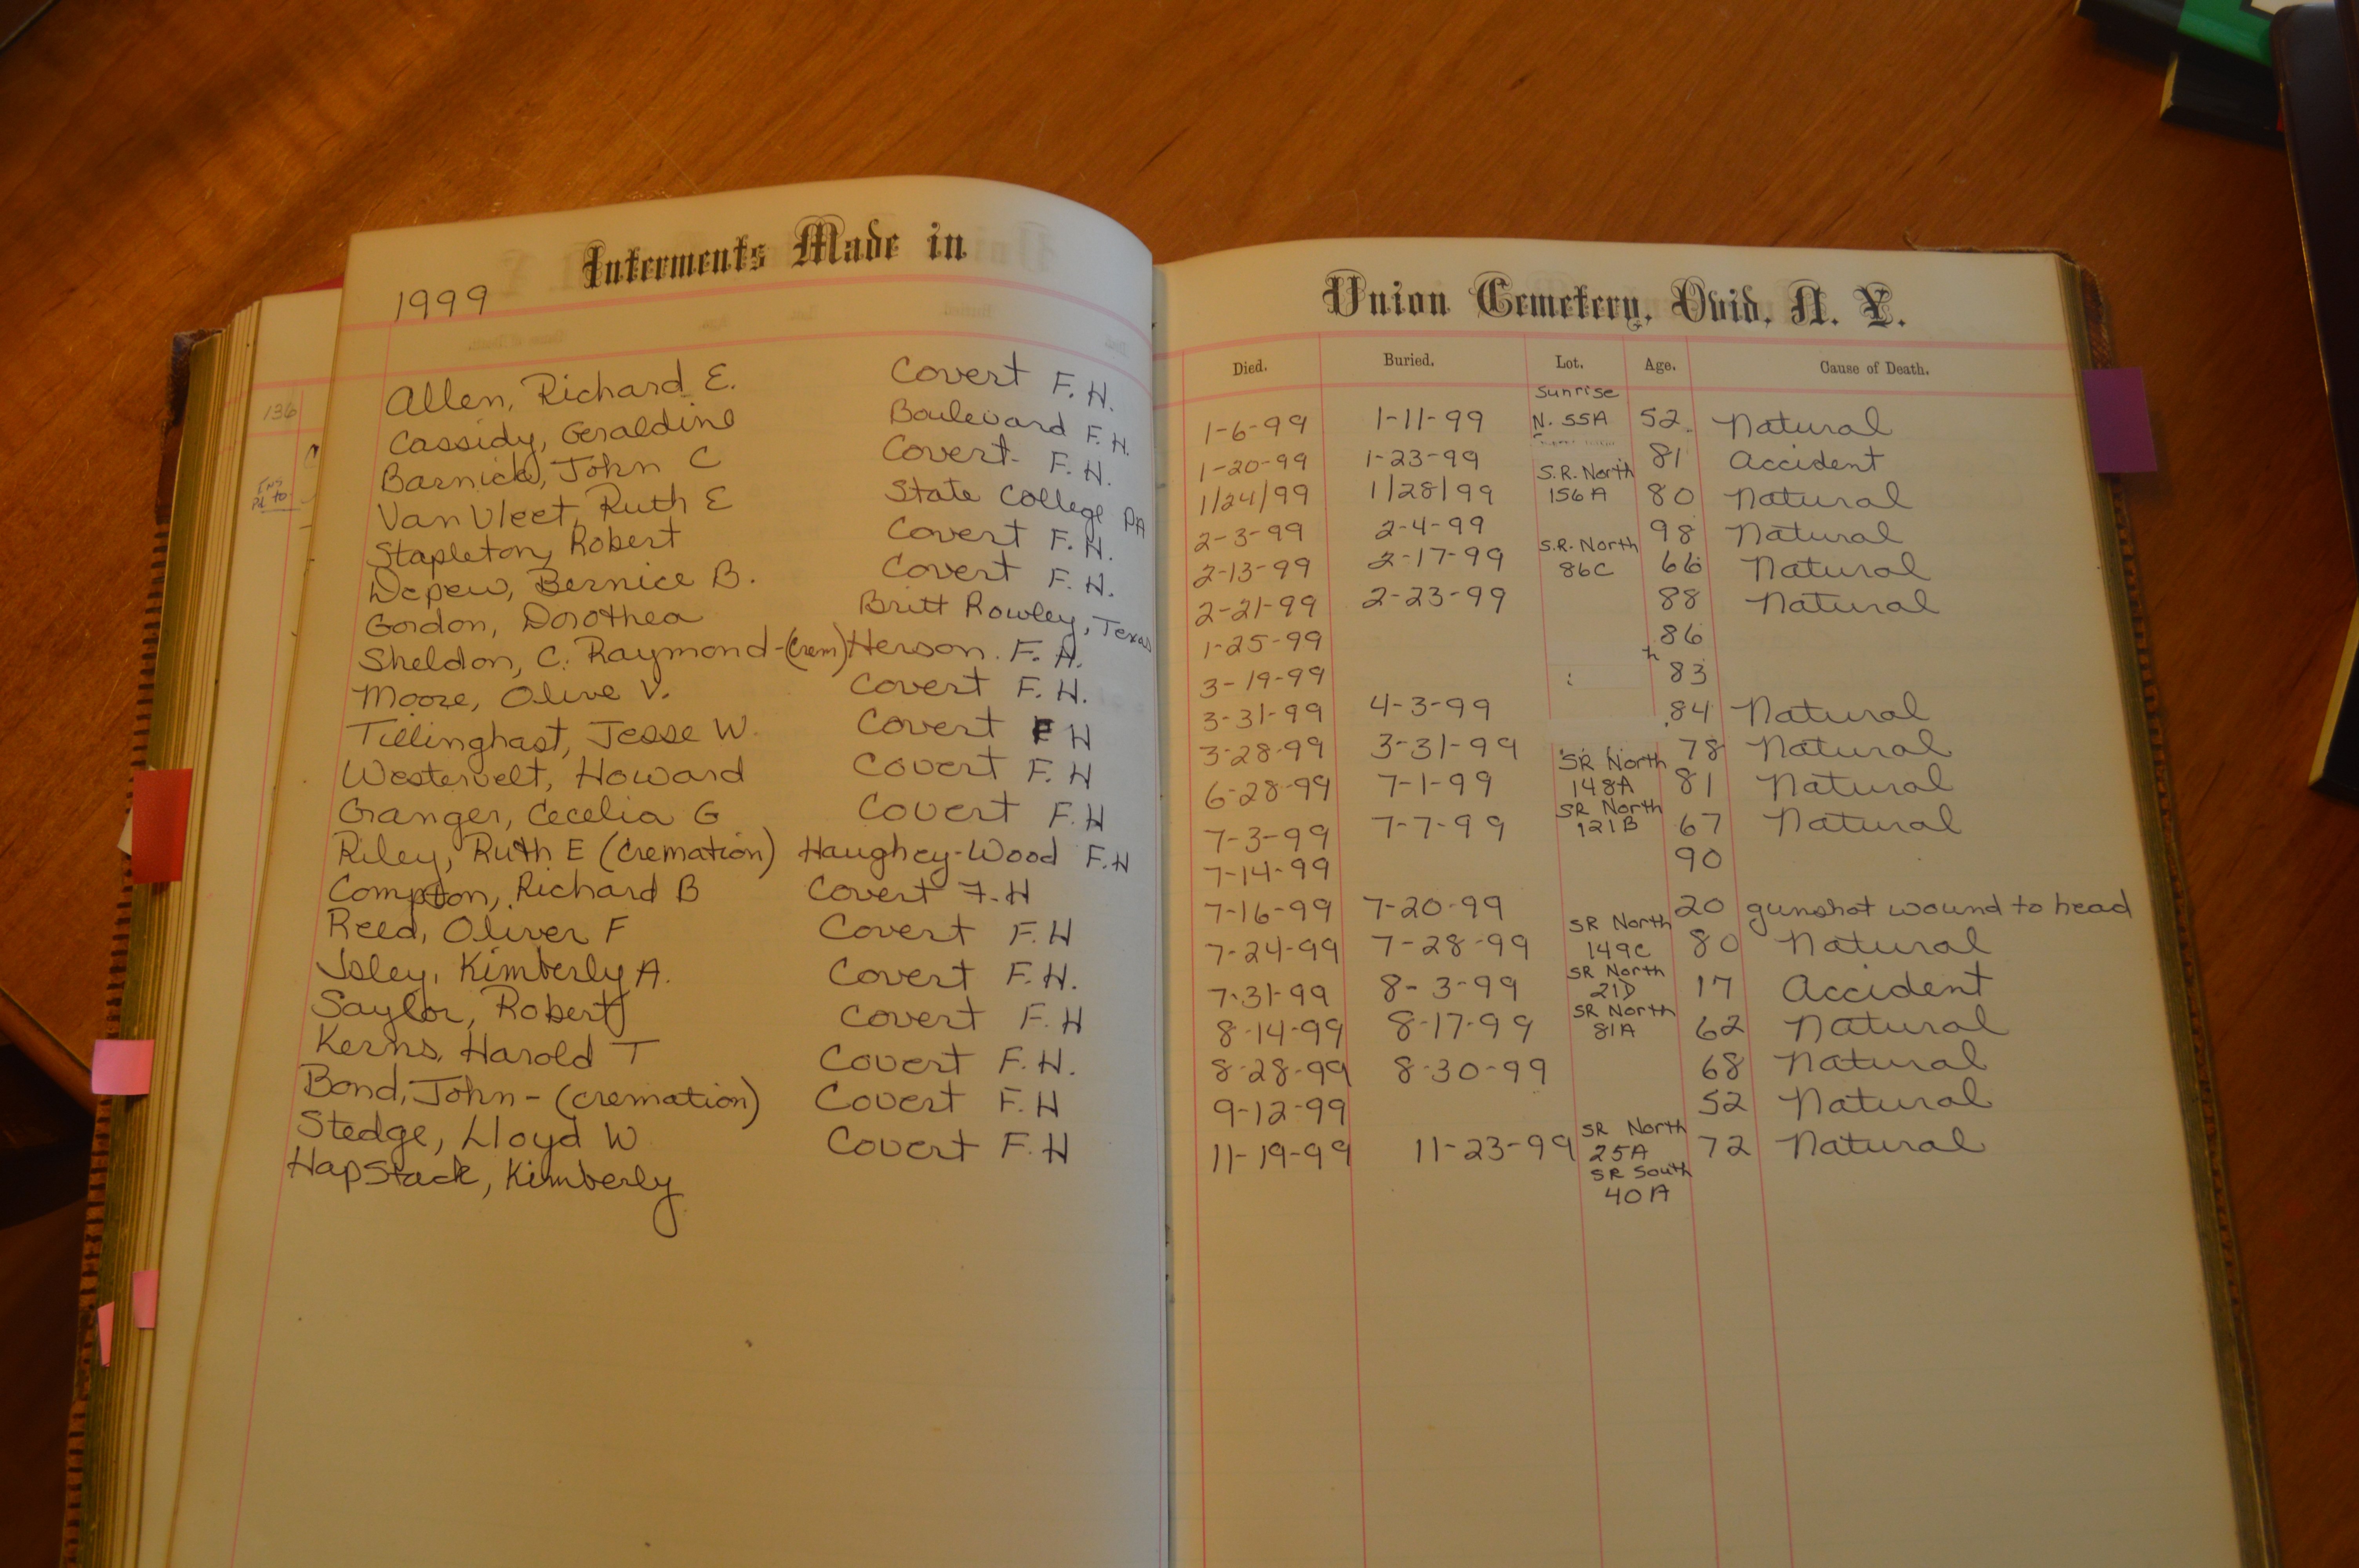 Interments Made in
1999
Union Cemetery, Ovid, N. Y.
Died. Buried. Lot. Age. Cause of Death.
136
Pd to
Allen, Richard E. Covert F. H. 1-6-99 1-11-99 Sunrise N. 55A 52 Natural
Cassidy, Geraldine Boulevard F. H. 1-20-99 1-23-99 81 Accident
Barnick, John C Covert F. H. 1/24/99 1/28/99 S.R. North 156A 80 Natural
Van Vleet, Ruth E State College PA 2-3-99 2-4-99 98 Natural
Stapleton, Robert Covert F. H. 2-13-99 2-17-99 S.R. North 86C 66 Natural
Depew, Bernice B. Covert F. H. 2-21-99 2-23-99 88 Natural
Gordon, Dorothea Britt Rowley, Texas 1-25-99 86
Sheldon, C. Raymond-(crem) Herson F. H. 3-19-99 83
Moore, Olive V. Covert F. H. 3-31-99 4-3-99 84 Natural
Tillinghast, Jesse W. Covert F H 3-28-99 3-31-99 78 Natural
Westervelt, Howard Covert F. H 6-28-99 7-1-99 SR North 148A 81 Natural
Granger, Cecelia G Covert F.H 7-3-99 7-7-99 SR North 121B 67 Natural
Riley, Ruth E (cremation) Haughey-Wood F.H 7-14-99 90
Compton, Richard B Covert F.H 7-16-99 7-20-99 20 gunshot wound to head
Reed, Oliver F Covert F.H 7-24-99 7-28-99 SR North 149C 80 Natural
Isley, Kimberly A. Covert F.H. 7-31-99 8-3-99 SR North 21D 17 Accident
Saylor, Robert Covert F.H 8-14-99 8-17-99 SR North 81A 62 Natural
Kerns, Harold T Covert F.H. 8-28-99 8-30-99 68 Natural
Bond, John - (cremation) Covert F.H 9-12-99 52 Natural
Stedge, Lloyd W Covert F.H 11-19-99 11-23-99 SR North 25A 72 Natural
HapStack, Kimberly SR South 40A